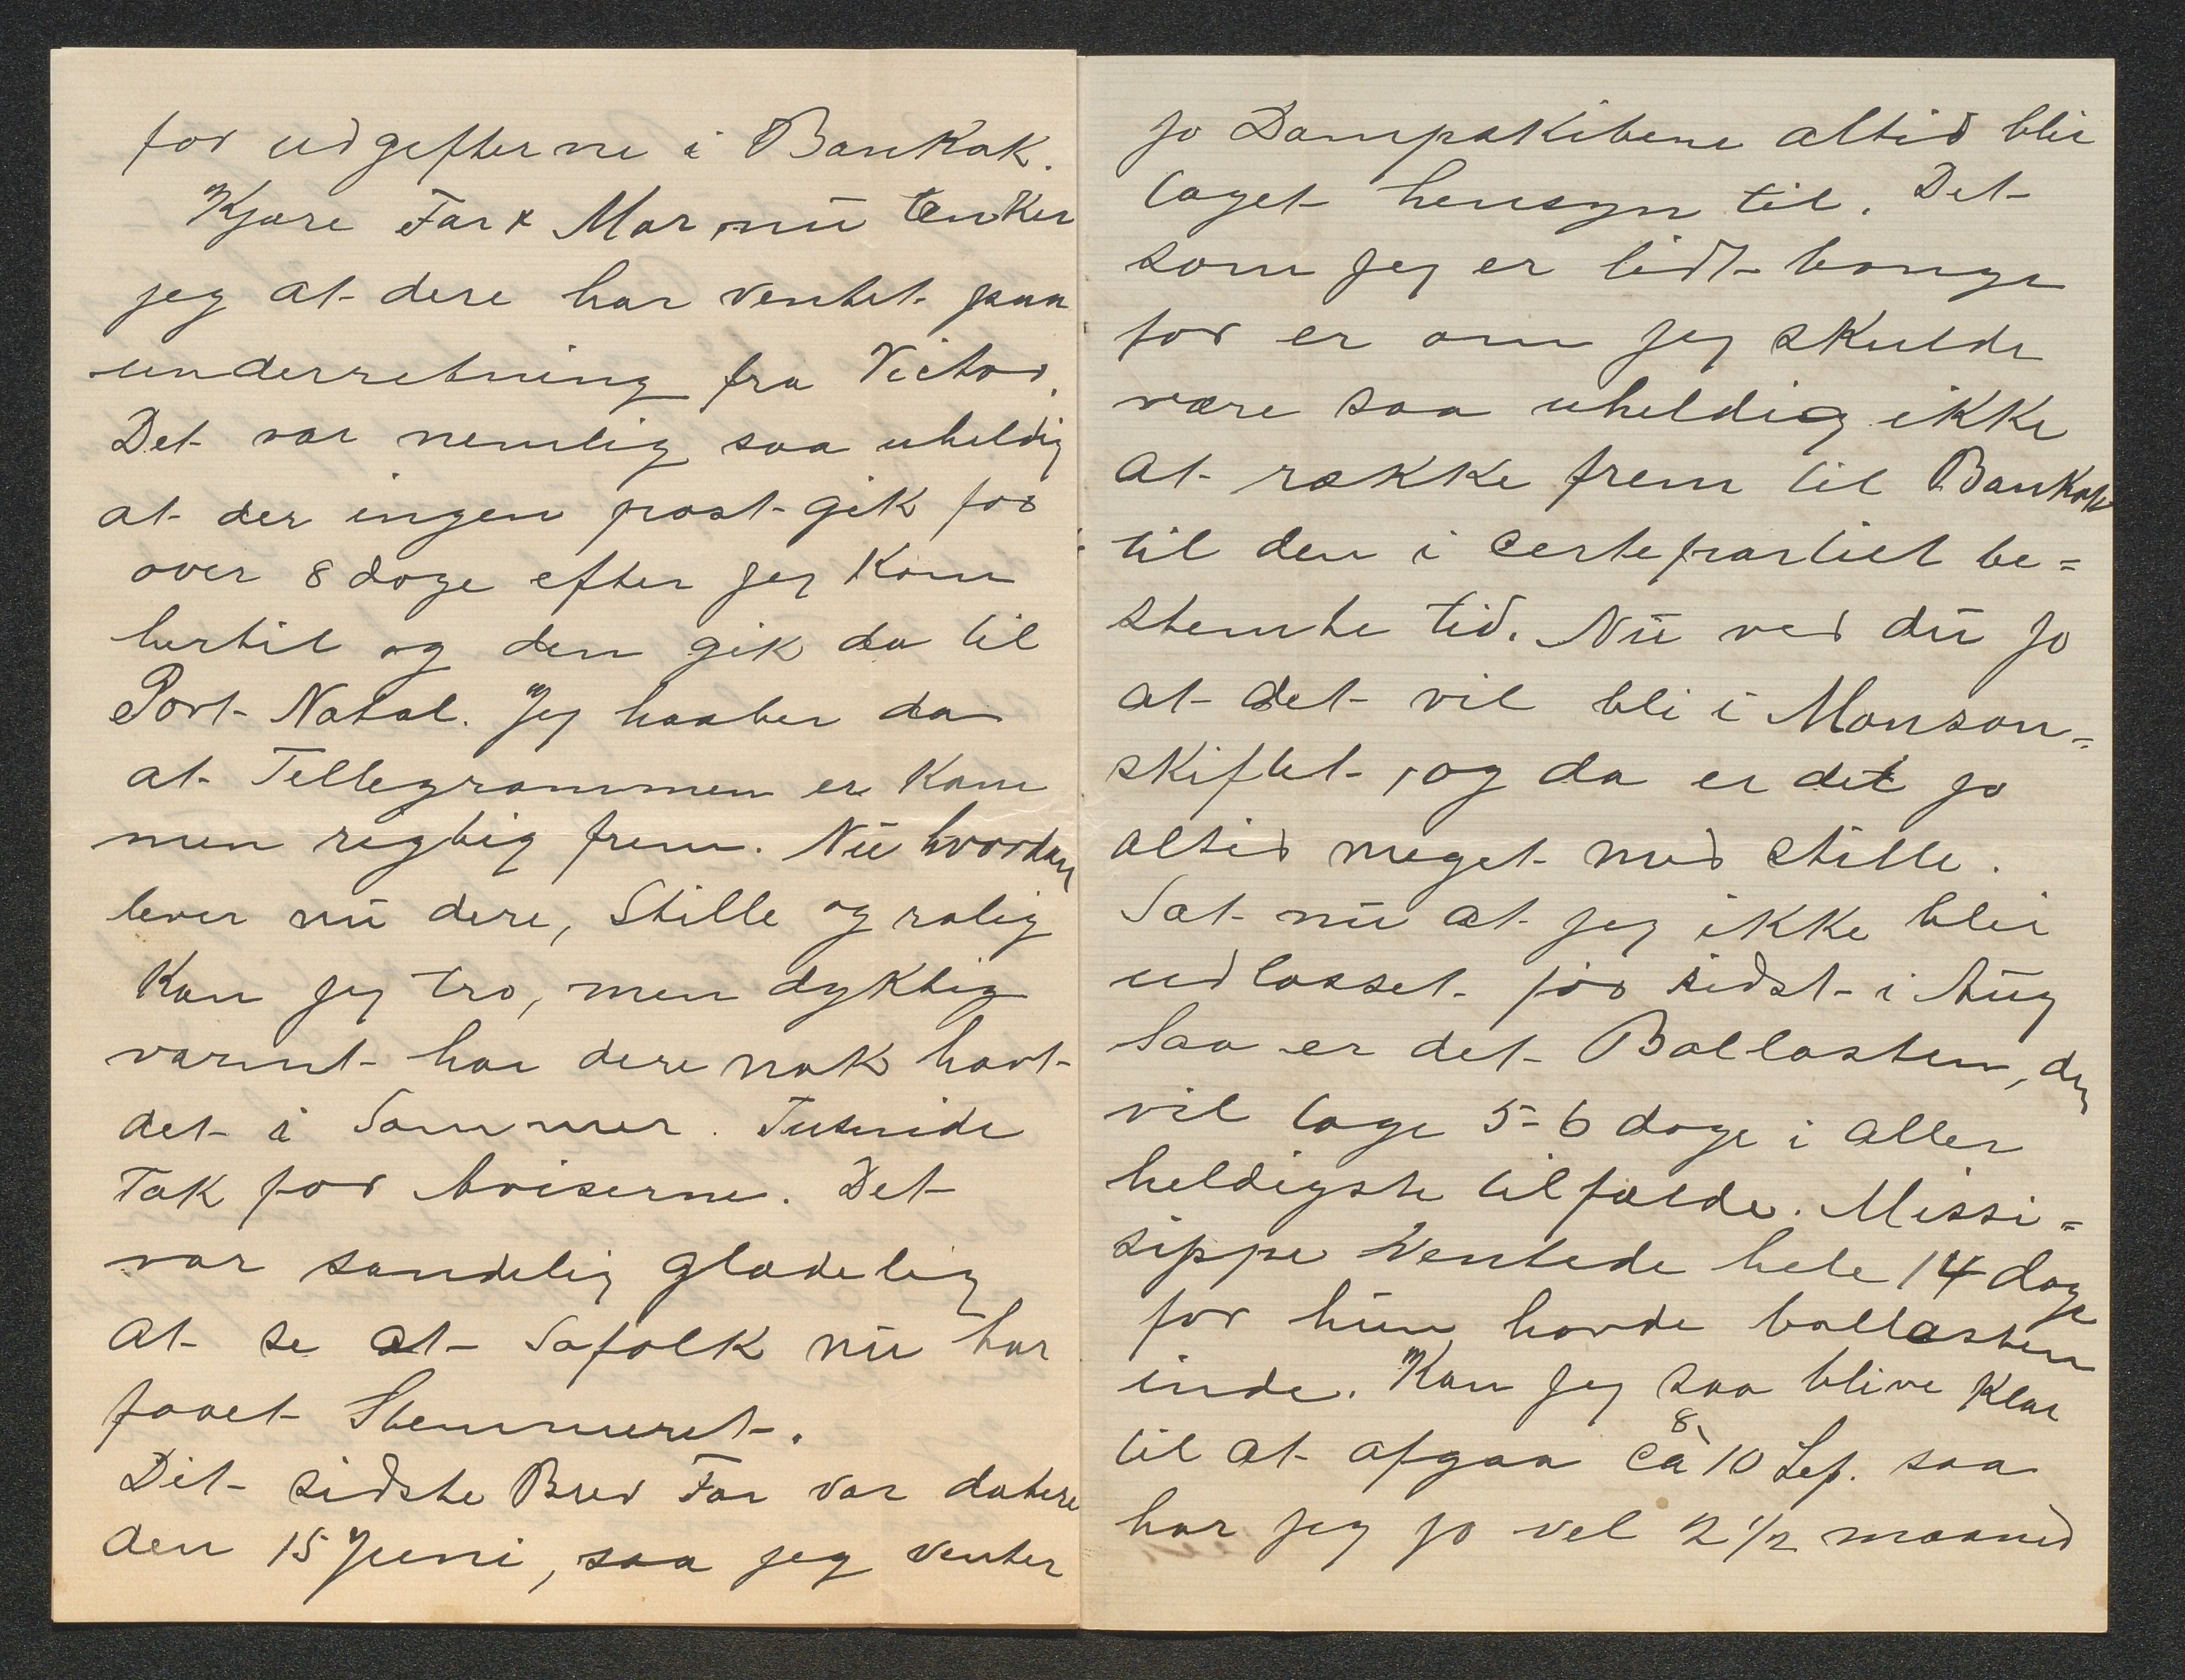 for udgifterne i Bankok.
Kjære Far & Mor, nu tænker
jeg at dere har ventet paa
underretning fra Victor.
Det var nemlig saa uheldig
at der ingen post gik før
over 8 dage efter jeg kom
hertil og den gik da til
Port Natal. Jeg haaber da
at Tellegrammen er kom
men rigtig frem. Nu hvordan
lever nu dere, Stille og rolig
kan jeg tro, men dyktig
varmt har dere nok havt
det i Sommer. Tusinde
Tak for Aviserne. Det
var sandelig glædelig
at se at Søfolk nu har
faaet Stemmeret.
Dit sidste Brev Far var datere
den 15 Juni, saa jeg venter
jo Dampskibene altid blir
taget hensyn til. Det
som jeg er lidt bange
for er om jeg skulde
være saa uheldig ikke
at række frem til Bankok
til den i Certepartiet be=
stemte tid. Nu ved du jo
at det vil bli i Monson=
skiftet, og da er det jo
altid meget med stille.
Sæt nu at jeg ikke blir
udlosset før sidst i Aug
Saa er det Ballasten, den
vil tage 5-6 dage i aller
heldigste tilfælde. Missi=
sippe ventede hele 14 dage
før hun havde ballasten
inde. Kan jeg saa blive klar
til at afgaa ca 8 10 Sep. saa
har jeg jo vel 2 1/2 maaned